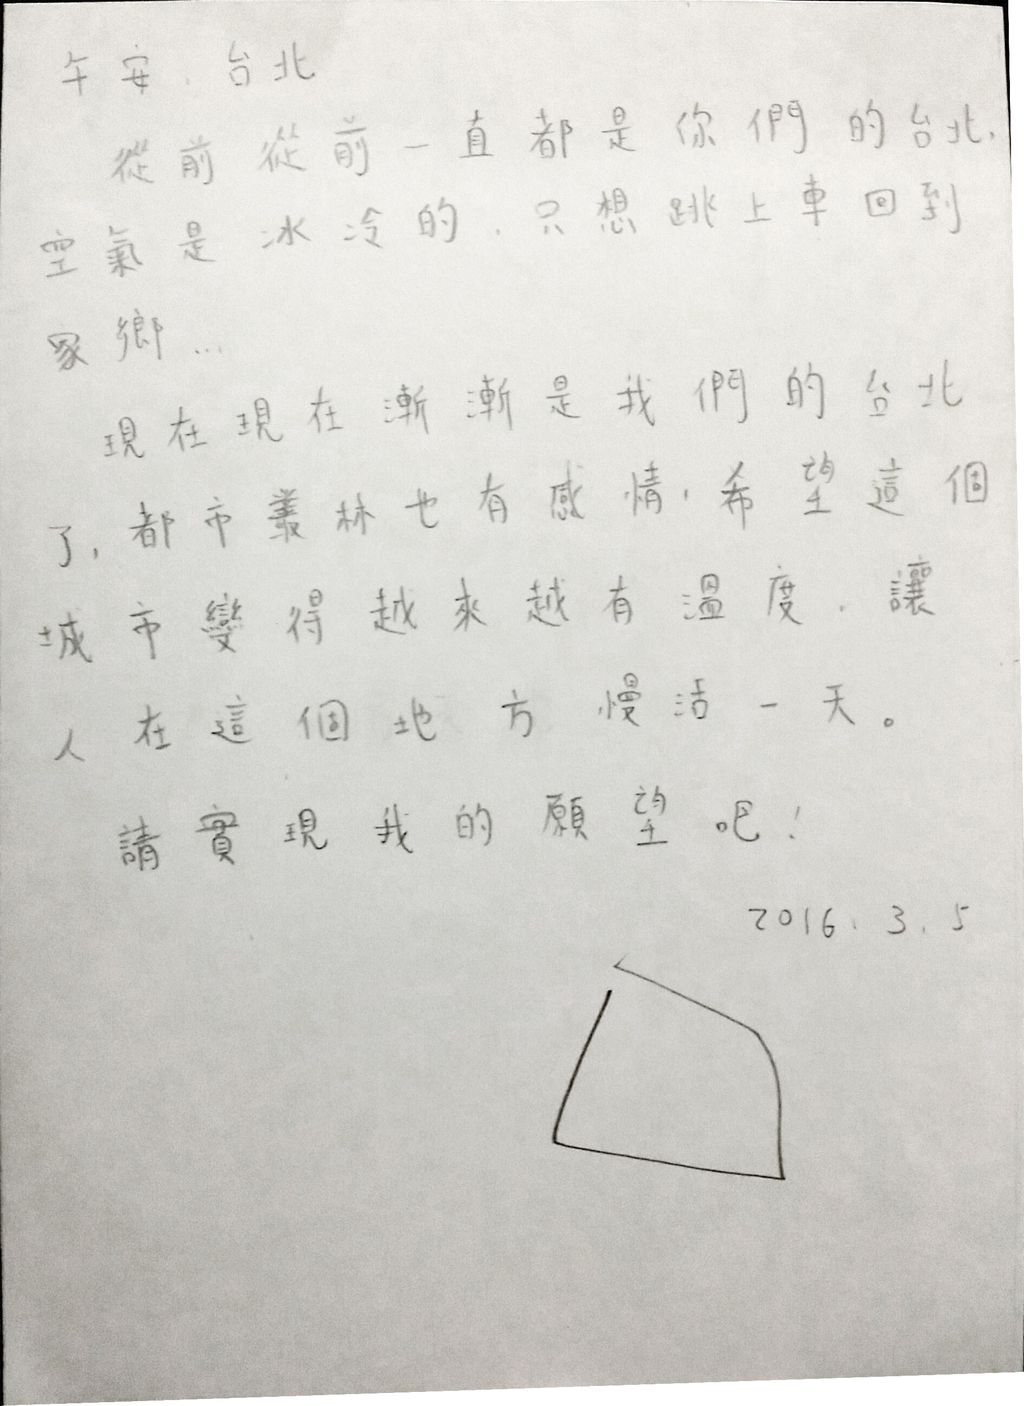 午安，台北
從前從前一直都是你們的台北，
空氣是冰冷的，只想跳上車回到
家鄉…
現在現在漸漸是我們的台北
了，都市叢林也有感情，希望這個
城市變得越來越有溫度，讓
人在這個地方慢活一天。
請實現我的願望吧！
2016.3.5